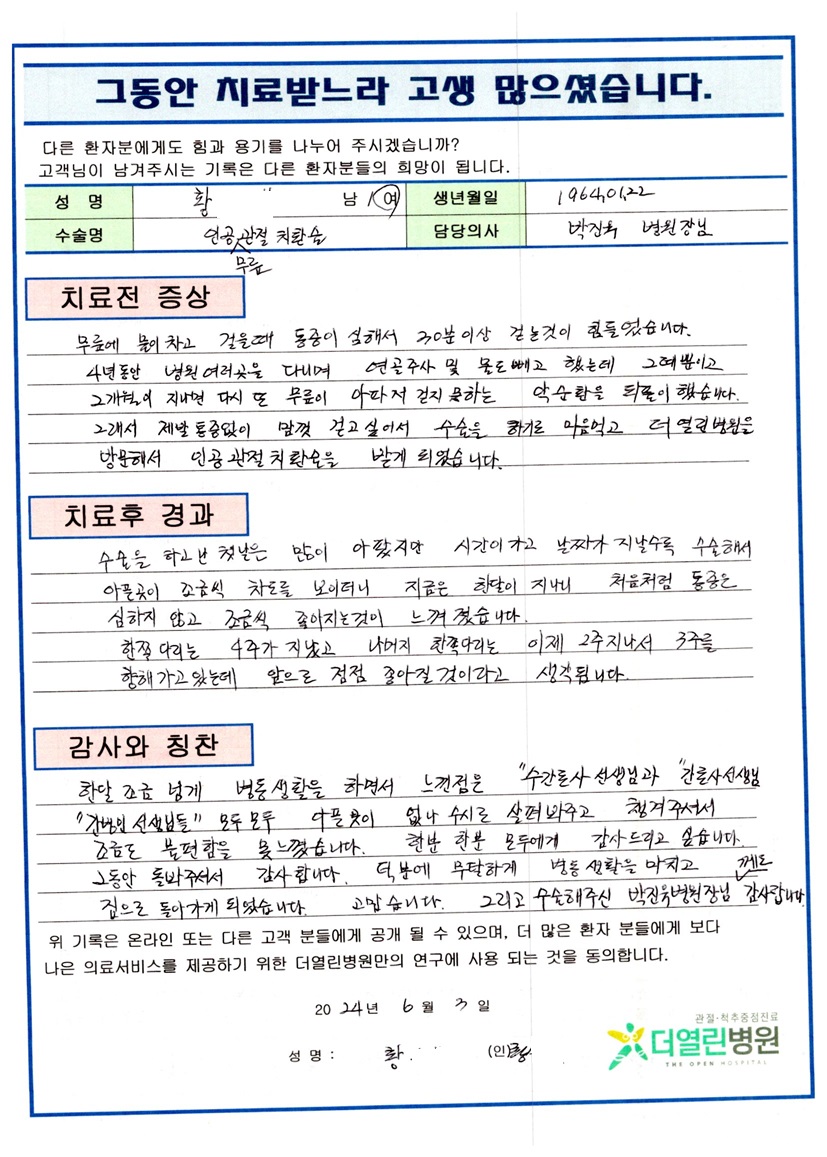 그동안 치료받느라 고생 많으셨습니다.
다른 환자분에게도 힘과 용기를 나누어 주시겠습니까?
고객님이 남겨주시는 기록은 다른 환자분들의 희망이 됩니다.
성 명 황 남 / 여 생년월일 1964,01,22
수술명 인공 무릎 관절 치환술 담당의사 박진욱 병원장님
치료전 증상
무릎에 물이차고 걸을때 통증이 심해서 30분이상 걷는것이 힘들었습니다.
4년동안 병원 여러곳을 다니며 연골주사 및 물도빼고 했는데 그때뿐이고
2개월이 지나면 다시 또 무릎이 아파서 걷지 못하는 악순환을 되풀이 했습니다.
그래서 제발 통증없이 맘껏 걷고 싶어서 수술을 하기로 마음먹고 더 열린병원을
방문해서 인공관절치환술을 받게 되었습니다.
치료후 경과
수술을 하고난 첫날은 많이 아팠지만 시간이 가고 날짜가 지날수록 수술해서
아픈곳이 조금씩 차도를 보이더니 지금은 한달이 지나니 처음처럼 통증은
심하지 않고 조금씩 좋아지는것이 느껴졌습니다.
한쪽 다리는 4주가 지났고 나머지 한쪽다리는 이제 2주지나서 3주를
향해가고 있는데 앞으로 점점 좋아질 것이라고 생각됩니다.
감사와 칭찬
한달 조금 넘게 병동생활을 하면서 느낀점은 "수간호사 선생님과 "간호사선생님
"간병인 선생님들" 모두모두 아픈곳이 없나 수시로 살펴봐주고 챙겨주셔서
조금도 불편함을 못느꼈습니다. 한분 한분 모두에게 감사드리고 싶습니다.
그동안 돌봐주셔서 감사합니다. 덕분에 무탈하게 병동생활을 마치고
집으로 돌아가게 되었습니다. 고맙습니다. 그리고 수술해주신 박진욱병원장님께도 감사합니다.
위 기록은 온라인 또는 다른 고객 분들에게 공개 될 수 있으며, 더 많은 환자 분들에게 보다
나은 의료서비스를 제공하기 위한 더열린병원만의 연구에 사용 되는 것을 동의합니다.
2024년 6월 3일
성 명 : 황 (인)
관절·척추중점진료
더열린병원
THE OPEN HOSPITAL